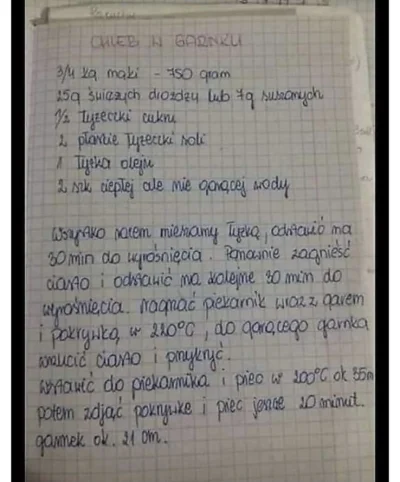 CHLEB W GARNKU
3/4 kg mąki - 750 gram
25g świeżych drożdży lub 7g suszonych
1/2 łyżeczki cukru
2 płaskie łyżeczki soli
1 łyżka oleju
2 szk ciepłej ale nie gorącej wody
Wszystko razem mieszamy łyżką, odstawić na
30 min do wyrośnięcia. Ponownie zagnieść
ciasto i odstawić na kolejne 30 min do
wyrośnięcia. Nagrzać piekarnik wraz z garem
i pokrywką w 220°C, do gorącego garnka
wrzucić ciasto i przykryć.
Wstawić do piekarnika i piec w 200°C ok 35m
potem zdjąć pokrywkę i piec jeszcze 20 minut.
garnek ok. 21 cm.